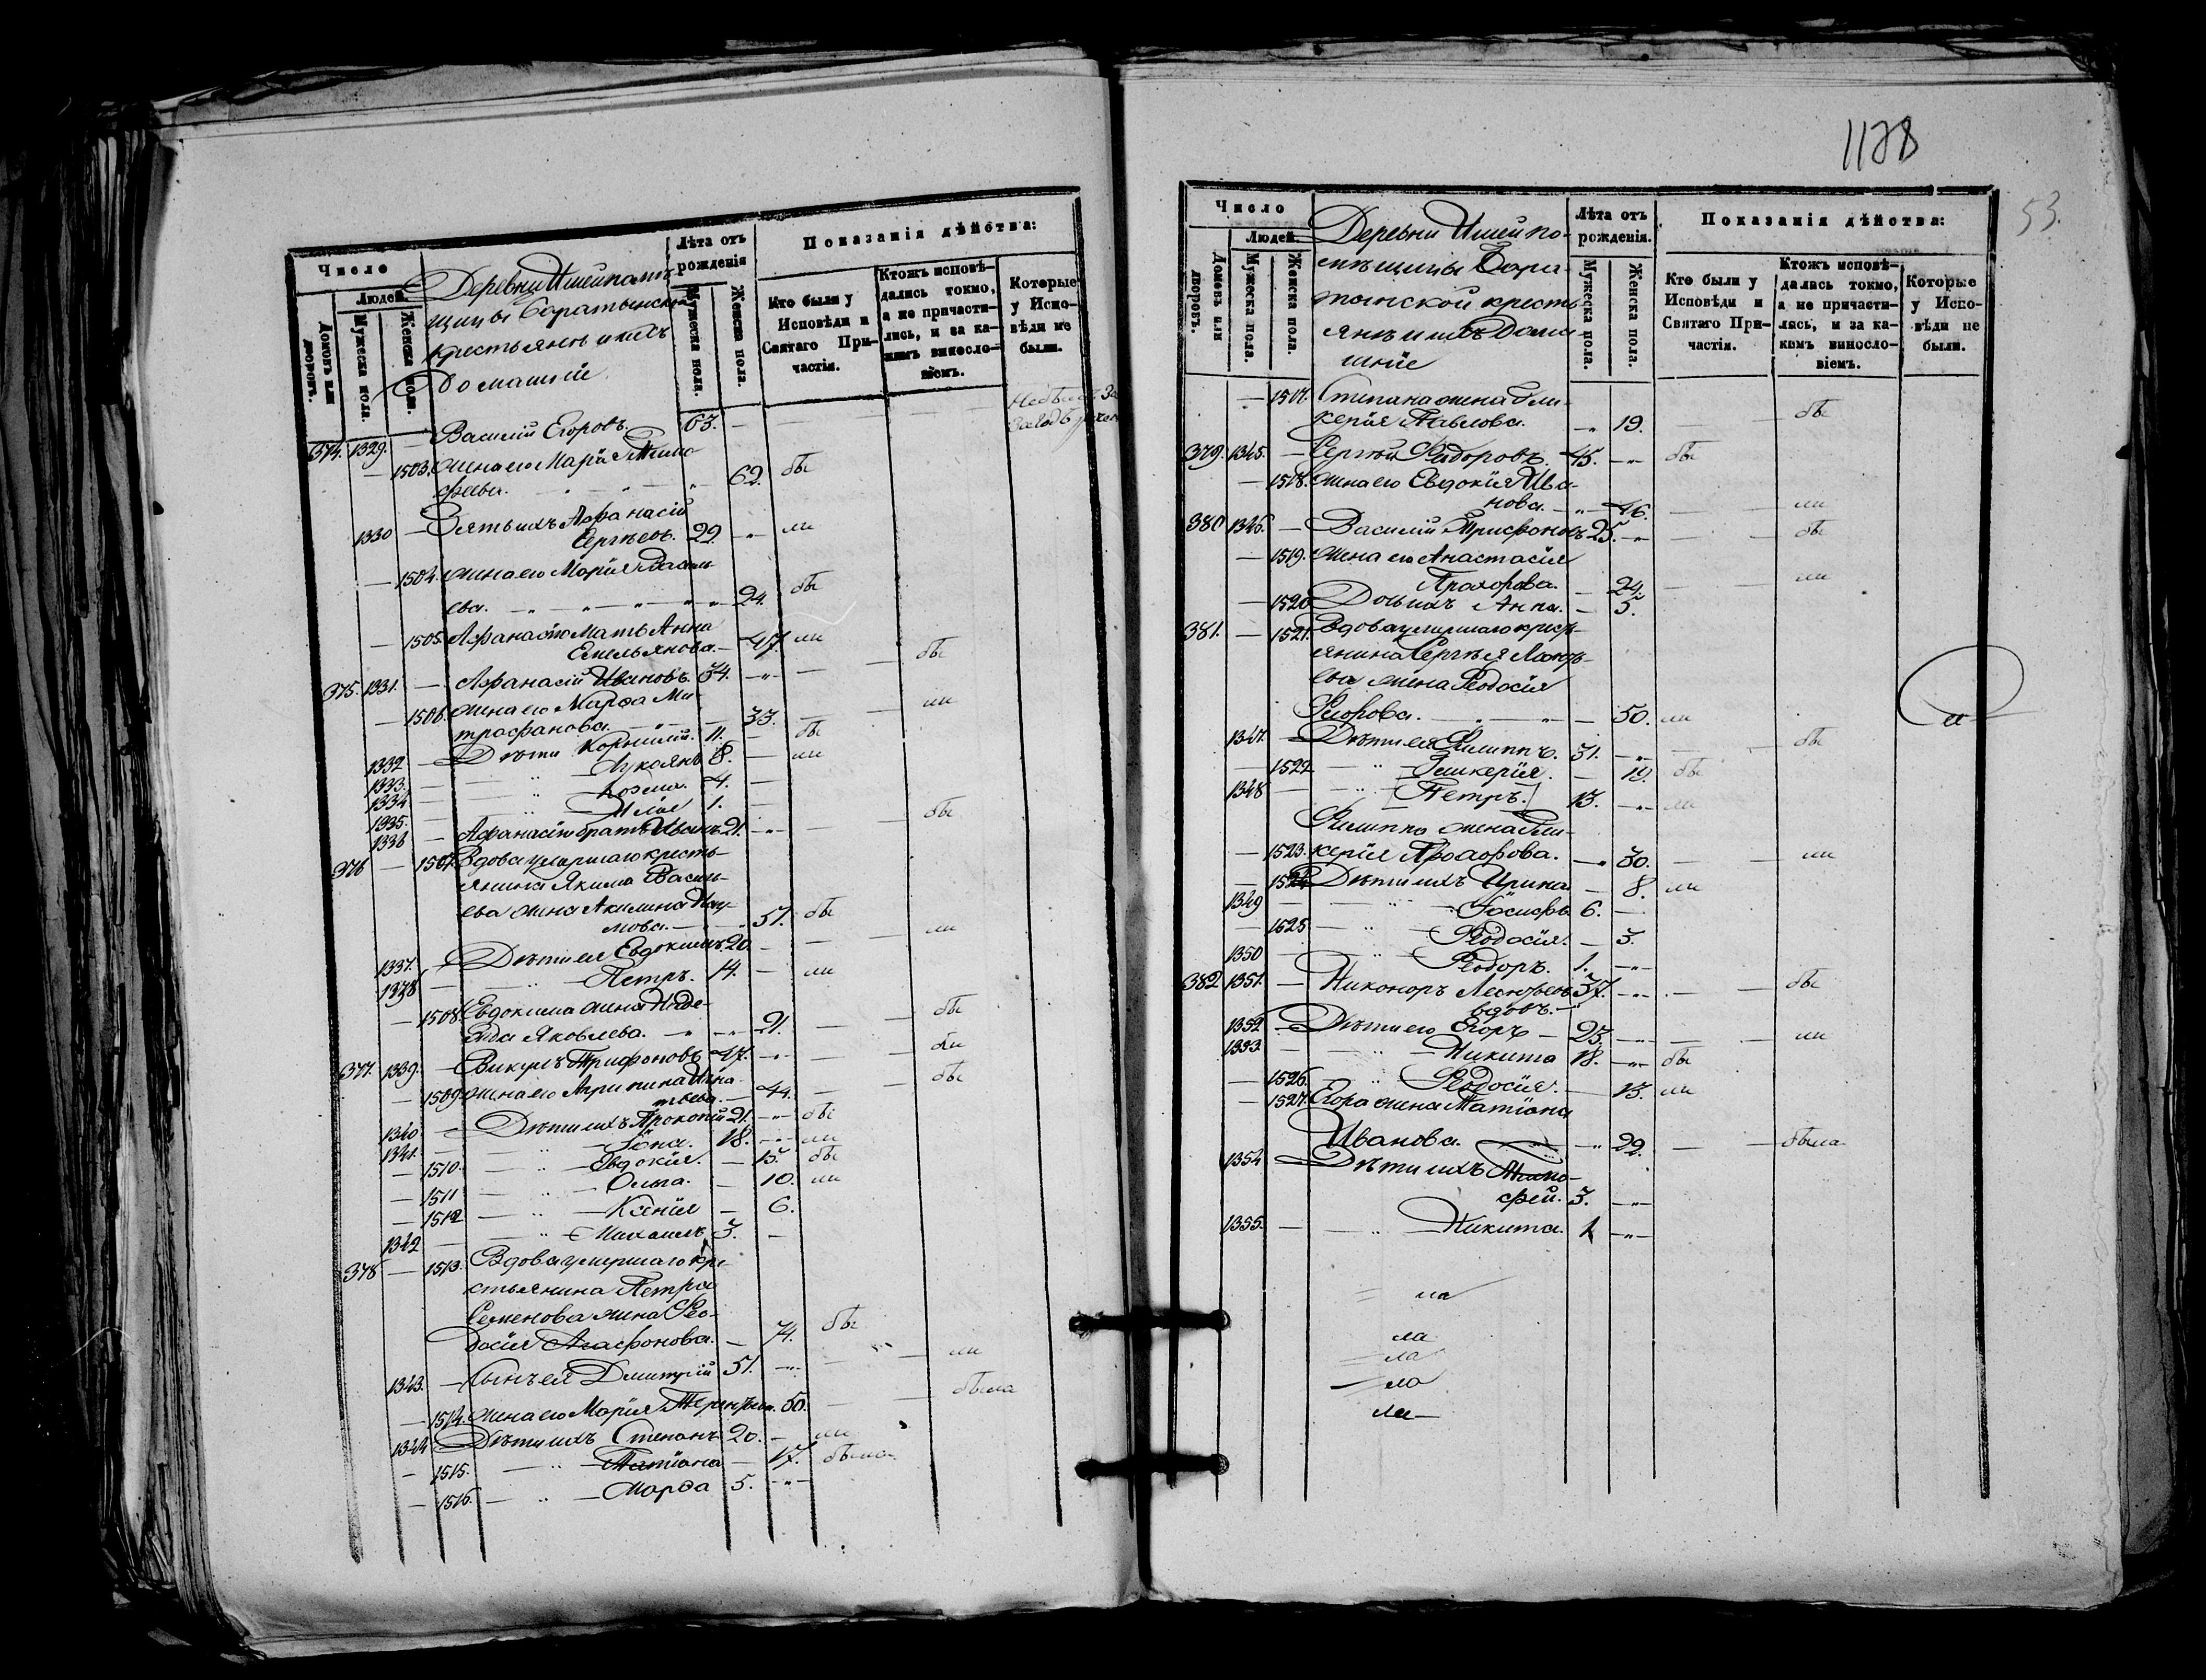 Число
Людей.
Домовъ или дворовъ.
Мужеска пола.
Женска пола.
Деревни Ишей помѣ-
щицы Боратынской
крестьянъ и ихъ
домашніе
Лѣта отъ рожденія
Мужеска пола.
Женска пола.
Показанія дѣйства:
Кто были у Исповѣди и Святаго При-частія.
Ктожъ исповѣ-дались токмо, а не причасти-лись, и за ка-кимъ винослo-віемъ.
Которые у Испо-вѣди не были.
374. 1329. — Василій Егоровъ. 63. —
— 1503. жена его Марія Тимо-
феева. 62. бы
1330 — Зять ихъ Афанасій
Сергѣевъ. 29. ли
— 1504. жена его Марія Василь-
ева. 24. бы
— 1505. Афанасію Мать Анна
Емельянова. — 47. ли
375. 1331. — Афанасій Ивановъ. 34. бы
— 1506. жена его Марфа Ми-
трофанова. — 33. ли
1332 — Дѣти Корнилій. 11. — бы
1333. — Лукоянъ 8. — ли
1334 — Козма. 4. —
1335. — Илія 1. —
1336 — Афанасію братъ Иванъ 21. бы
376 — 1507. Вдова умершаго кресть-
янина Якима Василь-
ева жена Акилина Нау-
мова. 51. бы
1337. — Дѣти ея Евдокимъ 20. ли
1338 — Петръ. 14. — ли
— 1508. Евдокима жена Наде-
жда Яковлева. 21. бы
377. 1339. — Викулъ Трифоновъ 47. бы
— 1509. жена его Агрипина Игна-
тьева. — 44. — бы
1340. — Дѣти ихъ Прокопій 21. бы
1341. — Іона. 18. ли
— 1510. — Евдокія. — 15. бы
— 1511 — Ольга. — 10. ли
— 1512 — Ксенія — 6.
1342 — Михаилъ 3. —
378 — 1513. Вдова умершаго кре-
стьянина Петра
Семенова жена Ѳео-
досія Агафонова. — 74. бы
1343. — Сынъ ея Дмитрій 51. ли
— 1514. жена его Марія Терентьев. 50. была
1344 — Дѣти ихъ Степанъ 20. — ли
— 1515. — Татіана — 17. была
— 1516. — Марфа 5.
1178
53.
Число
Людей.
Домовъ или дворовъ.
Мужеска пола.
Женска пола.
Деревни Ишей по-
мѣщицы Бора-
тынской кресть
янъ и ихъ дома
шніе
Лѣта отъ рожденія.
Мужеска пола.
Женска пола.
Показанія дѣйства:
Кто были у Исповѣди и Святаго При-частія.
Ктожъ исповѣ-дались токмо, а не причасти-лись, и за ка-кимъ винослo-віемъ.
Которые у Испо-вѣди не были.
— 1517. Степана жена Гли-
керія Павлова. 19. бы
379. 1345. — Сергѣй Ѳедоровъ. 45. бы
— 1518. жена его Евдокія Ива-
нова. 46. ли
380 1346. — Василій Трифоновъ 25. бы
— 1519. жена его Анастасія
Прохорова. — 24. ли
— 1520 Дочь ихъ Анна. — 5.
381. — 1521. Вдова умершаго крест-
янина Сергѣя Леонть-
ева жена Ѳеодосія
Егорова. — 50. ли
1347. — Дѣти ея Филиппъ. 31. бы
— 1522 — Гликерія. — 19. бы
1348 — Петръ. 13. ли
Филиппа жена Гли-
— 1523. керія Прохорова. 30. ли
— 1524 Дѣти ихъ Ирина — 8. ли
1349 — Іосифъ. 6. —
— 1525 — Ѳеодосія. — 3.
1350 — Ѳеодоръ. 1.
382 1351. — Никоноръ Леонтьевъ 37. бы
вдовъ.
1352 — Дѣти его Егоръ — 23. ли
1353. — Никита 18. бы
— 1526. — Ѳеодосія. — 13. ли
— 1527. Егора жена Татіана
Иванова. 22. — была
1354 — Дѣти ихъ Тимо-
фей. 3.
1355. — Никита. 1
ла
ла
ла
ла
ла